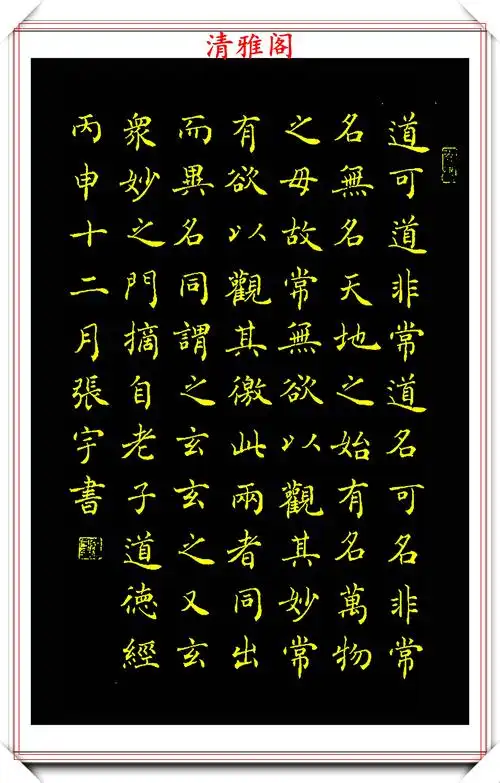 清雅阁
道可道非常道名可名非常
名無名天地之始有名萬物
之母故常無欲以觀其妙常
有欲以觀其徼此兩者同出
而異名同謂之玄玄之又玄
衆妙之門摘自老子道德經
丙申十二月張宇書